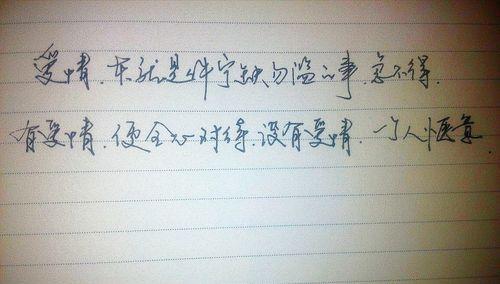 爱情，本就是件宁缺勿滥的事，急不得。
有爱情，便全心对待，没有爱情，一个人惬意。